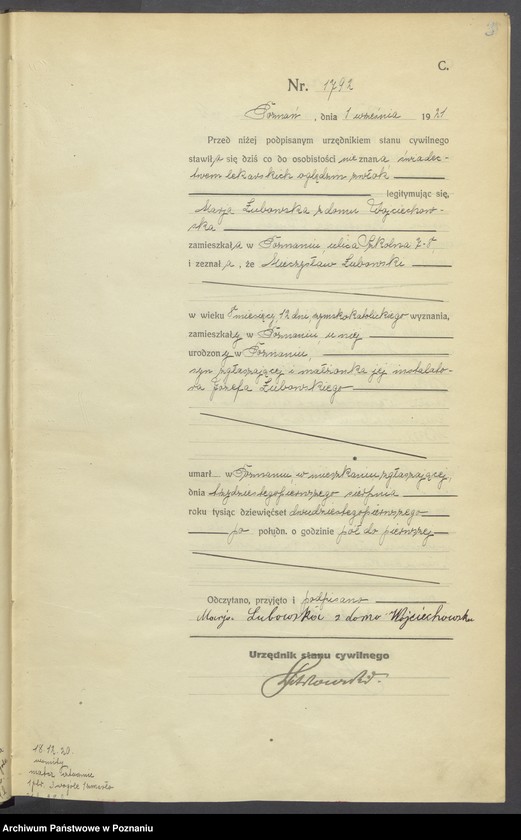 C.
Nr. 1792
Poznań, dnia 1 września 1921
Przed niżej podpisanym urzędnikiem stanu cywilnego
stawiła się dziś co do osobistości nieznana świadec-
twem lekarskich oględzin zwłok
legitymując się,
Marja Lubowska z domu Wojciechow-
ska
zamieszkała w Poznaniu, ulica Szkolna 7-8,
i zeznała, że Mieczysław Lubowski
w wieku miesięcy, 12 dni, rzymskokatolickiego wyznania,
zamieszkały w Poznaniu, u niej
urodzony w Poznaniu,
syn zgłaszającej i małżonka jej instalato-
ra Józefa Lubowskiego
umarł w Poznaniu, w mieszkaniu zgłaszającej,
dnia trzydziestegopierwszego sierpnia
roku tysiąc dziewięćset dwudziestegopierwszego
po połudn. o godzinie pół do pierwszej
Odczytano, przyjęto i podpisano
Marja Lubowska z domu Wojciechowska
Urzędnik stanu cywilnego
18.12.20.
Archiwum Państwowe w Poznaniu